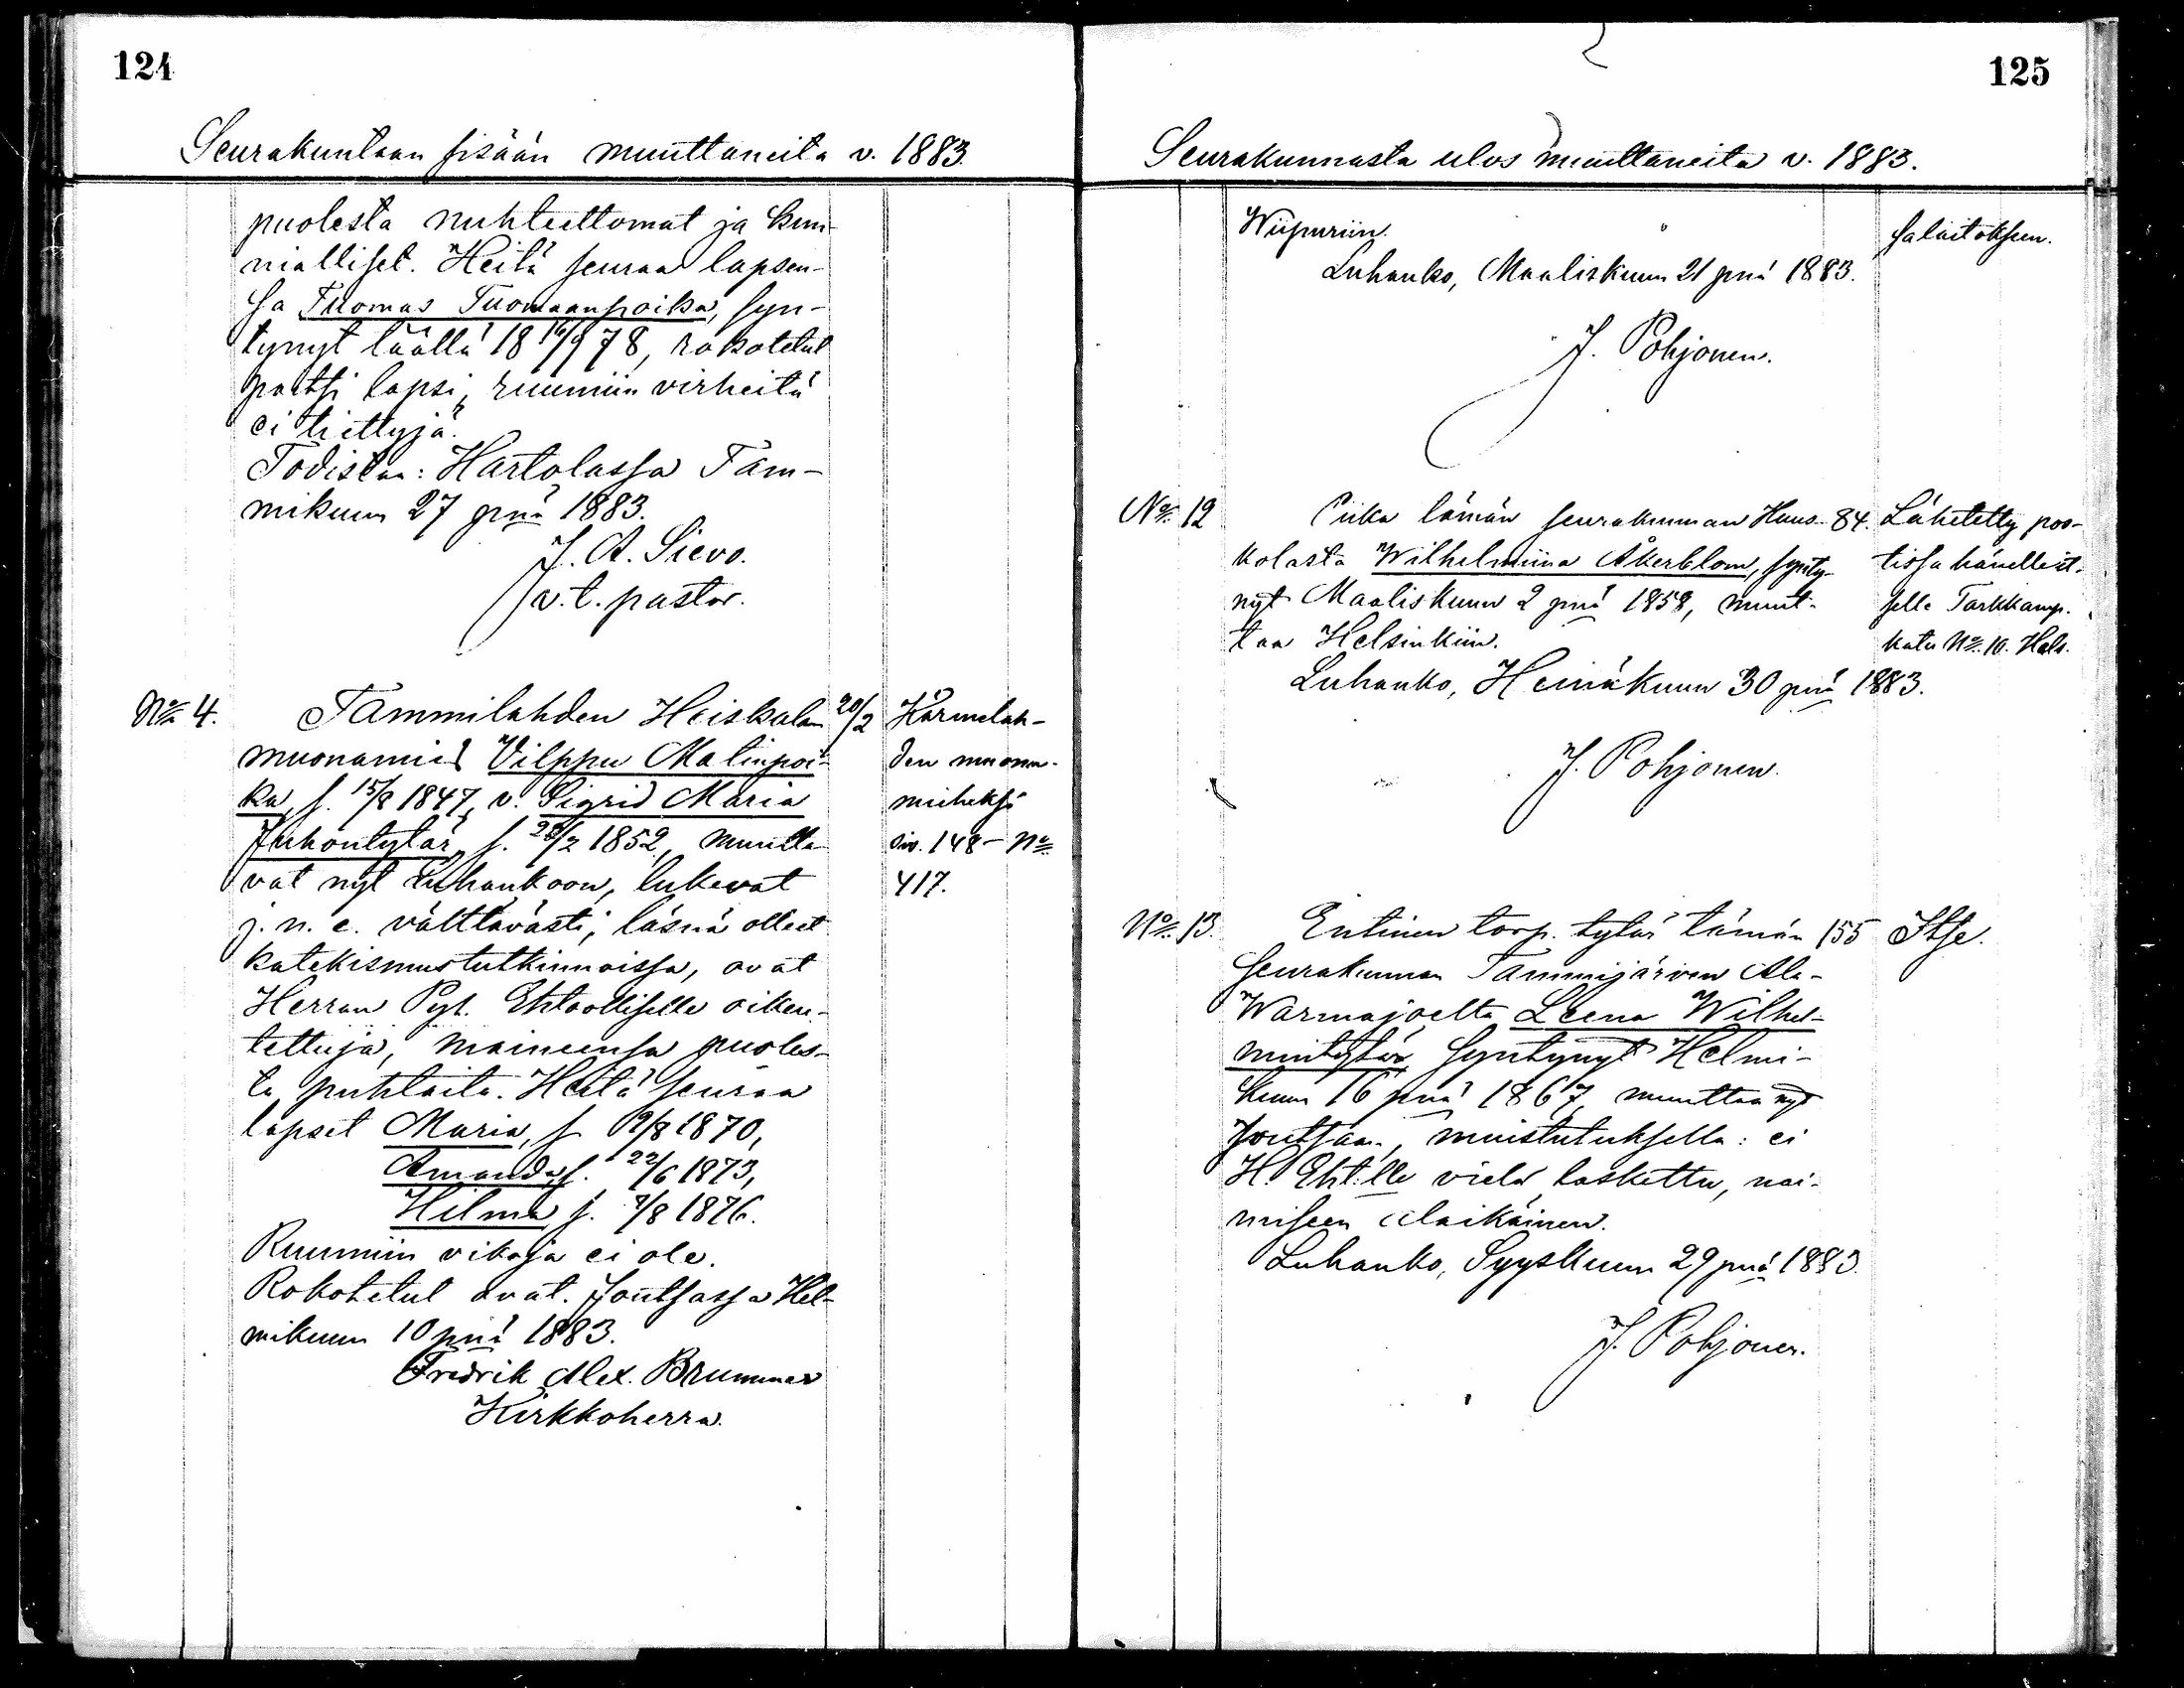 124
Seurakuntaan sisään muuttaneita v. 1883.
puolesta nuhteettomat ja kun-
nialliset. Heitä seuraa lapsen-
sa Tuomas Tuomaanpoika, syn-
tynyt täällä 18 16/9 78, rokotettu
lapsi, ruumiin virheitä
ei tiettyjä.
Todistaa: Hartolassa Tam-
mikuun 27 pnä 1883.
J. A. Sievo.
v.t. pastor.
No 4.
Tammilahden Heiskalan
muonamies Vilppu Matinpoi-
ka, s. 15/8 1847, v. Sigrid Maria
Juhontytär, s. 28/2 1852, muutta-
vat nyt Luhankoon, lukevat
j. n. e. välttävästi, läsnä olleet
katekismustutkinnoissa, ovat
Herran Pyh. Ehtoolliselle oikeu-
tettuja, maineensa puoles-
ta puhtaita. Heitä seuraa
lapset Maria, s. 19/8 1870,
Amanda, s. 22/6 1873,
Hilma, s. 7/8 1876.
Ruumiin vikoja ei ole.
Rokotetut ovat. Joutsassa Hel-
mikuun 10 pnä 1883.
Fredrik Alex. Brummer
Kirkkoherra.
20/2
Kärmelah-
den muona-
mieheksi
siv. 148 - No
417.
125
Seurakunnasta ulos muuttaneita v. 1883.
Wiipuriin.
Luhanko, Maaliskuun 21 pnä 1883.
J. Pohjonen.
salaitokseen.
No 12
Piika tämän seurakunnan Huus-
kolasta Wilhelmiina Åkerblom, synty-
nyt Maaliskuun 2 pnä 1858, muut-
taa Helsinkiin.
Luhanko, Heinäkuun 30 pnä 1883.
J. Pohjonen.
84.
Lähetetty pos-
tissa hänelle it-
selle Tarkkamp.
katu No 10. Hels.
No 13.
Entinen torp. tytär tämän
seurakunnan Tammijärven Ala-
Warmajoelta Leena Wilhel-
mintytär, syntynyt Helmi-
kuun 16 pnä 1867, muuttaa nyt
Joutsaan, muistutuksella: ei
H. Eht:lle vielä laskettu, nai-
miseen alaikäinen.
Luhanko, Syyskuun 29 pnä 1883.
J. Pohjonen.
155
Itse.